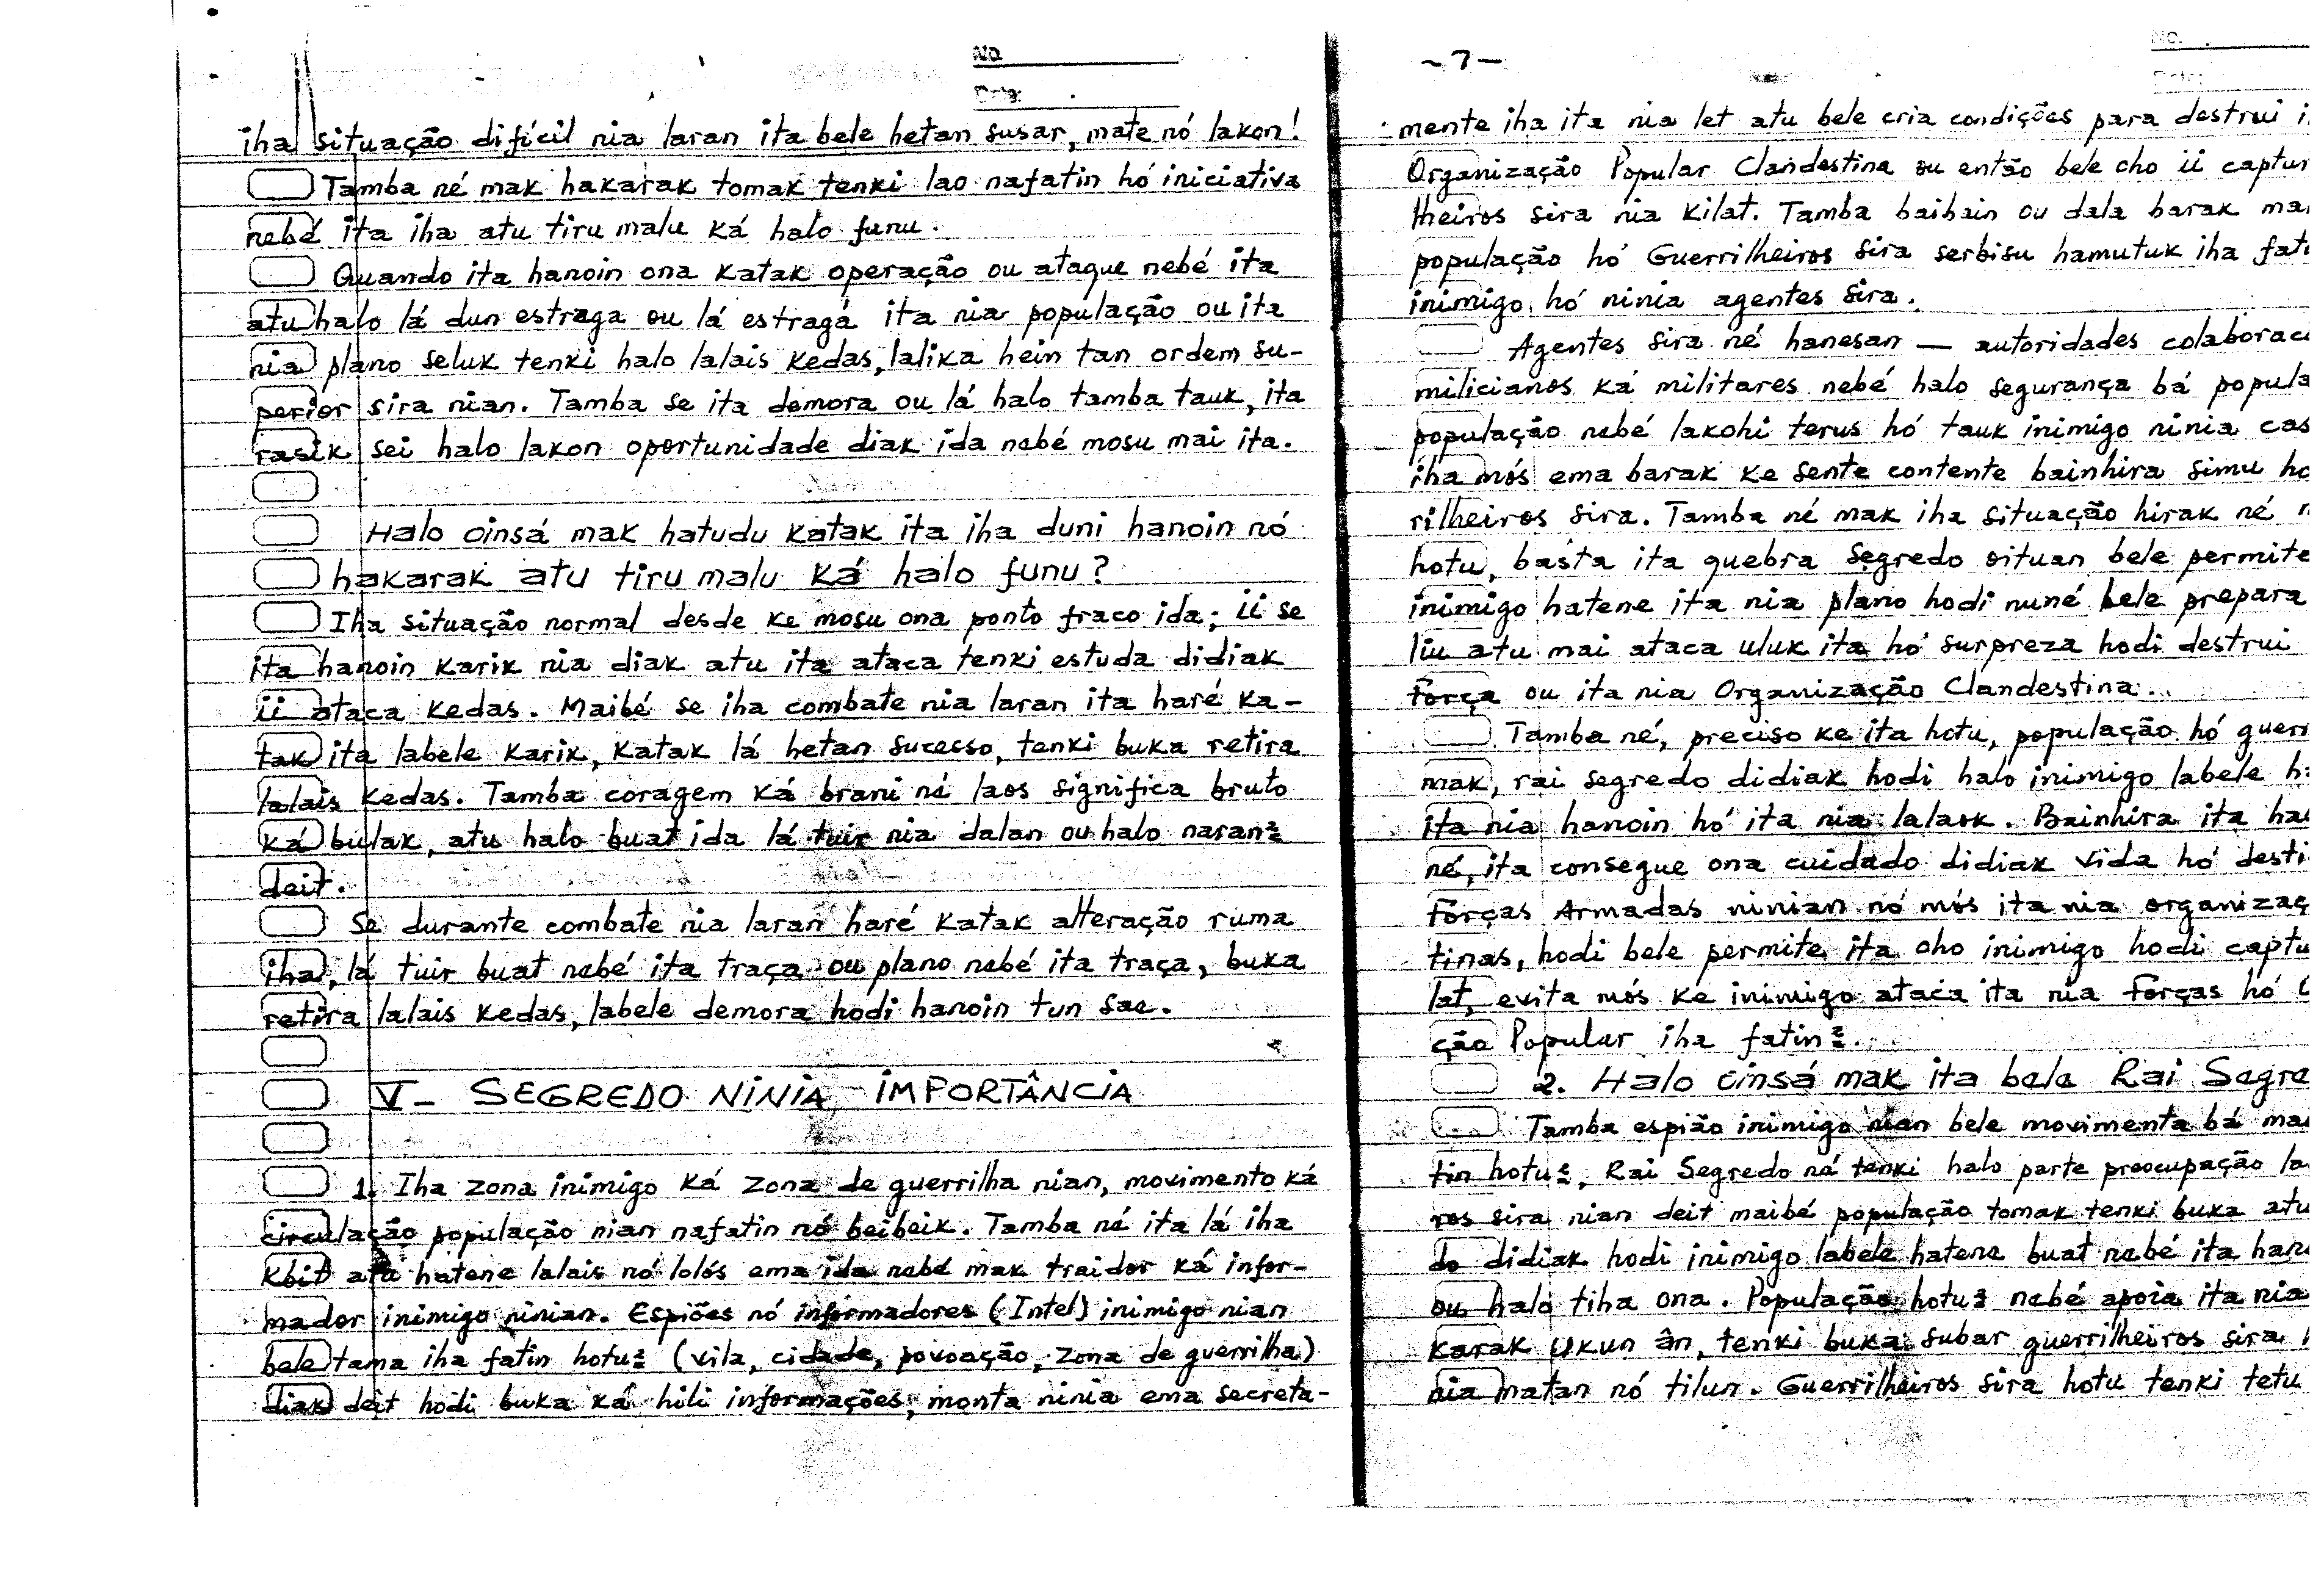 No.
Date:
iha situação difícil nia laran ita bele hetan susar, mate nó lakon!
Tamba né mak hakarak tomak tenki lao nafatin hó iniciativa
nebé ita iha atu tiru malu ká halo funu.
Quando ita hanoin ona katak operação ou ataque nebé ita
atu halo lá dun estraga ou lá estraga ita nia população ou ita
nia plano seluk tenki halo lalais kedas, lalika hein tan ordem su-
perior sira nian. Tamba se ita demora ou lá halo tamba tauk, ita
rasik sei halo lakon oportunidade diak ida nebé mosu mai ita.
Halo oinsá mak hatudu katak ita iha duni hanoin nó
hakarak atu tiru malu ká halo funu?
Iha situação normal desde ke mosu ona ponto fraco ida; ii se
ita hanoin karik nia diak atu ita ataca tenki estuda didiak
ii ataca kedas. Maibé se iha combate nia laran ita haré ka-
tak ita labele karik, katak lá hetan sucesso, tenki buka retira
lalais kedas. Tamba coragem ká brani né laos significa bruto
ká bulak, atu halo buat ida lá tuir nia dalan ou halo naran²
deit.
Se durante combate nia laran haré katak alteração ruma
iha, lá tuir buat nebé ita traça ou plano nebé ita traça, buka
retira lalais kedas, labele demora hodi hanoin tun sae.
V- SEGREDO NINIA IMPORTÂNCIA
1. Iha zona inimigo ká zona de guerrilha nian, movimento ká
circulação população nian nafatin nó beibeik. Tamba né ita lá iha
kbit atu hatene lalais nó lolós ema ida nebé mak traidor ká infor-
mador inimigo ninian. Espiões nó informadores (Intel) inimigo nian
bele tama iha fatin hotu² (vila, cidade, povoação, zona de guerrilha)
diak deit hodi buka ká hili informações, monta ninia ema secreta-
~7-
No.
Date:
mente iha ita nia let atu bele cria condições para destrui i
Organização Popular Clandestina ou então bele oho ii captur
lheiros sira nia kilat. Tamba baibain ou dala barak ma
população hó Guerrilheiros sira serbisu hamutuk iha fat
inimigo hó ninia agentes sira.
Agentes sira né hanesan — autoridades colaborac
milicianos ká militares nebé halo segurança bá popula
população nebé lakohi terus hó tauk inimigo ninia cas
iha mós ema barak ke sente contente bainhira simu ho
rilheiros sira. Tamba né mak iha situação hirak né
hotu, basta ita quebra segredo oituan bele permite
inimigo hatene ita nia plano hodi nuné bele prepara
liu atu mai ataca uluk ita hó surpreza hodi destrui
força ou ita nia Organização Clandestina.
Tamba né, preciso ke ita hotu, população hó guerr
mak, rai segredo didiak hodi halo inimigo labele h
ita nia hanoin hó ita nia lalaok. Bainhira ita ha
né, ita consegue ona cuidado didiak vida hó desti
Forças Armadas ninian nó mós ita nia organizaç
tinas, hodi bele permite ita oho inimigo hodi captu
lat, evita mós ke inimigo ataca ita nia Forças hó
ção Popular iha fatin².
2. Halo oinsá mak ita bele Rai Segre
Tamba espião inimigo nian bele movimenta bá ma
tin hotu², Rai Segredo né tenki halo parte preocupação la
ros sira nian deit maibé população tomak tenki buka atu
do didiak hodi inimigo labele hatene buat nebé ita han
ou halo tiha ona. População hotu² nebé apoia ita nia
karak Ukun ân, tenki buka subar guerrilheiros sira
nia matan nó tilun. Guerrilheiros sira hotu tenki tetu